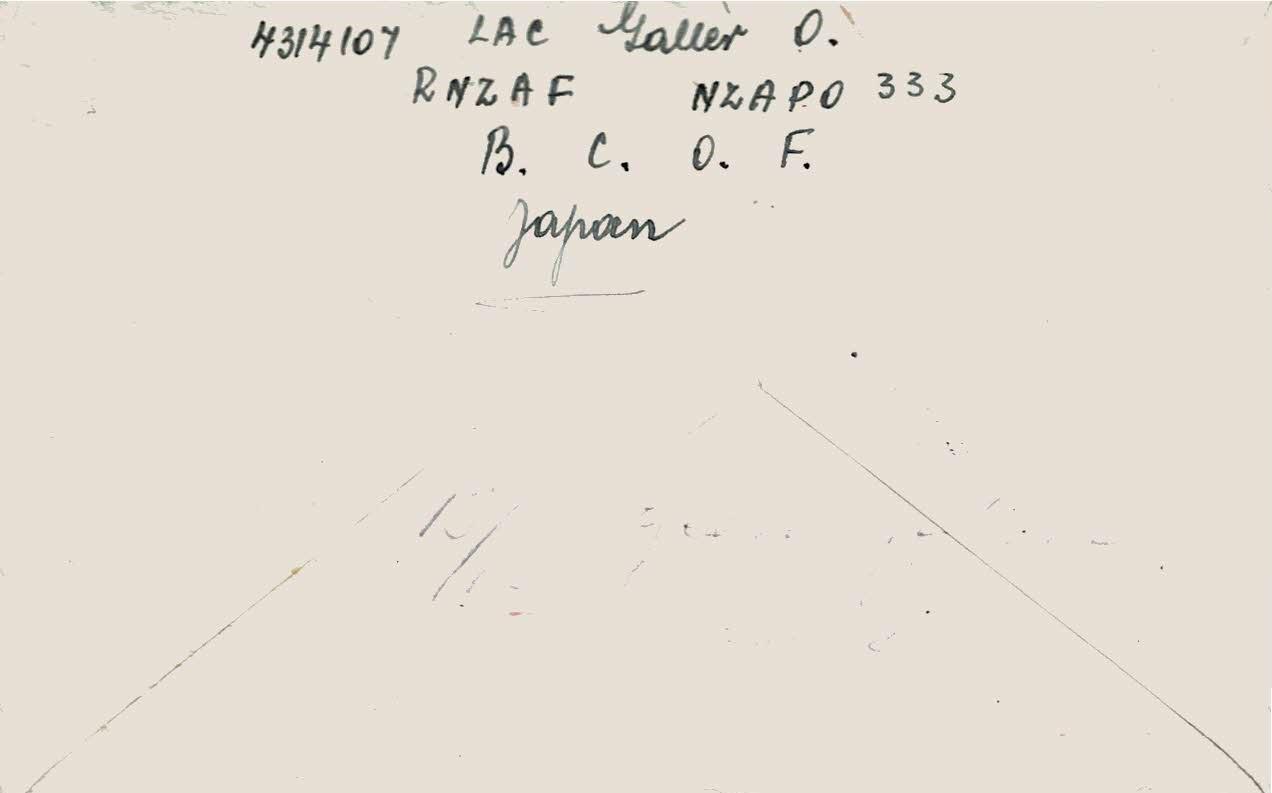 4314107 LAC Galler O.
RNZAF NZAPO 333
B. C. O. F.
Japan